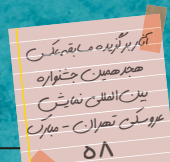 آثار برگزیده مسابقه عکس
هجدهمین جشنواره
بین المللی نمایش
عروسکی تهران - مبارک
۵۸